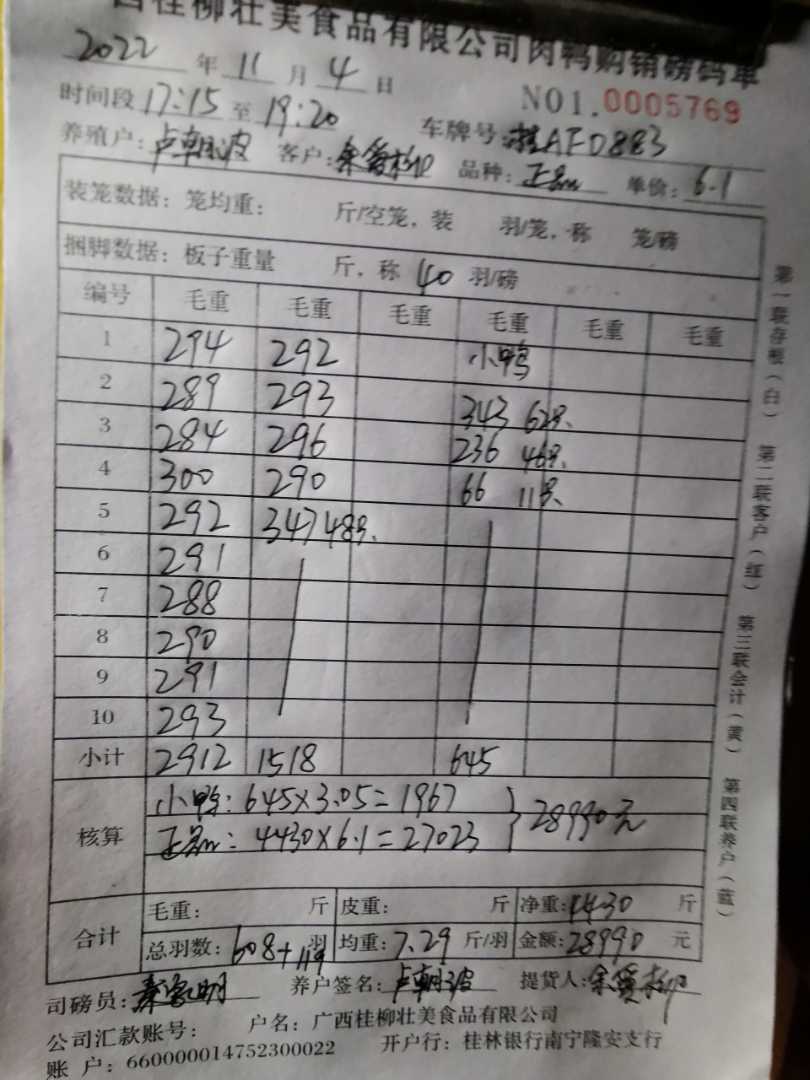 西桂柳壮美食品有限公司肉鸭购销磅码单
2022 年 11 月 4 日 NO1.0005769
时间段 17:15 至 19:20 车牌号:桂AFD883
养殖户:卢朝波 客户: 品种:正品 单价:6.1
装笼数据:笼均重: 斤/空笼,装 羽/笼,称 笼/磅
捆脚数据:板子重量 斤,称 40 羽/磅
编号 毛重 毛重 毛重 毛重 毛重 毛重
1 294 292 小鸭
2 289 293 343 62只
3 284 296 236 46只
4 300 290 66 11只
5 292 347 48只
6 291
7 288
8 290
9 291
10 293
小计 2912 1518 645
核算 小鸭:645×3.05=1967
正品:4430×6.1=27023 28990元
合计 毛重: 斤 皮重: 斤 净重:4430 斤
总羽数:608+119 羽 均重:7.29 斤/羽 金额:28990 元
司磅员: 养户签名:卢朝波 提货人:
公司汇款账号: 户名:广西桂柳壮美食品有限公司
账 户:660000014752300022 开户行:桂林银行南宁隆安支行
第一联存根(白) 第二联客户(红) 第三联会计(黄) 第四联养户(蓝)